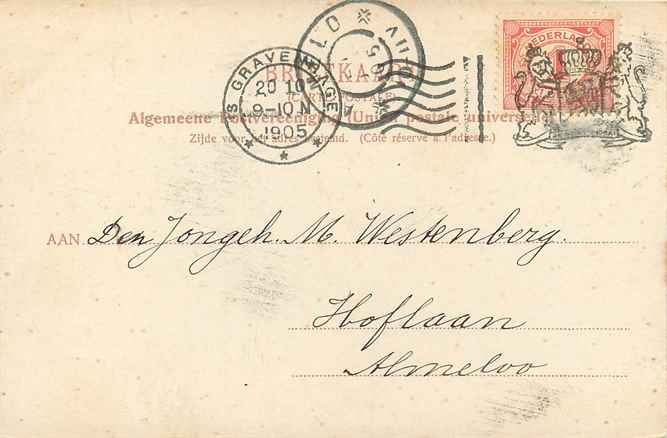 NEDERLAND
'S GRAVENHAGE
20 10
9-10 N
1905
BRIEFKAART
(CARTE POSTALE)
Algemeene Postvereeniging (Union postale universelle)
Zijde voor het adres bestemd. (Côté réservé à l'adresse.)
AAN Den Jongeh. M. Westenberg.
Hoflaan
Almeloo